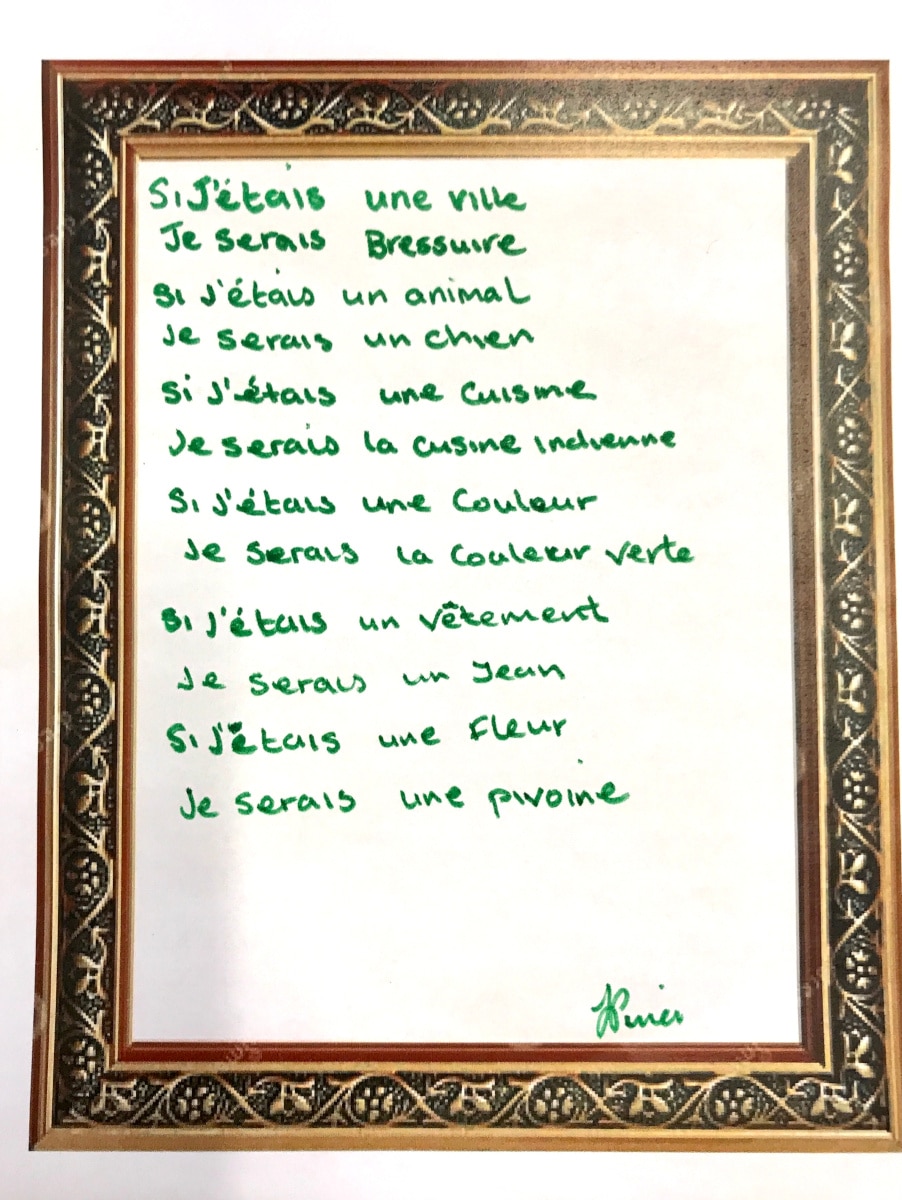 Si J'étais une ville
Je serais Bressuire
Si J'étais un animal
Je serais un chien
Si J'étais une Cuisine
Je serais la cusine indienne
Si J'étais une Couleur
Je serais la Couleur verte
Si J'étais un vêtement
Je serais un Jean
Si J'étais une Fleur
Je serais une pivoine